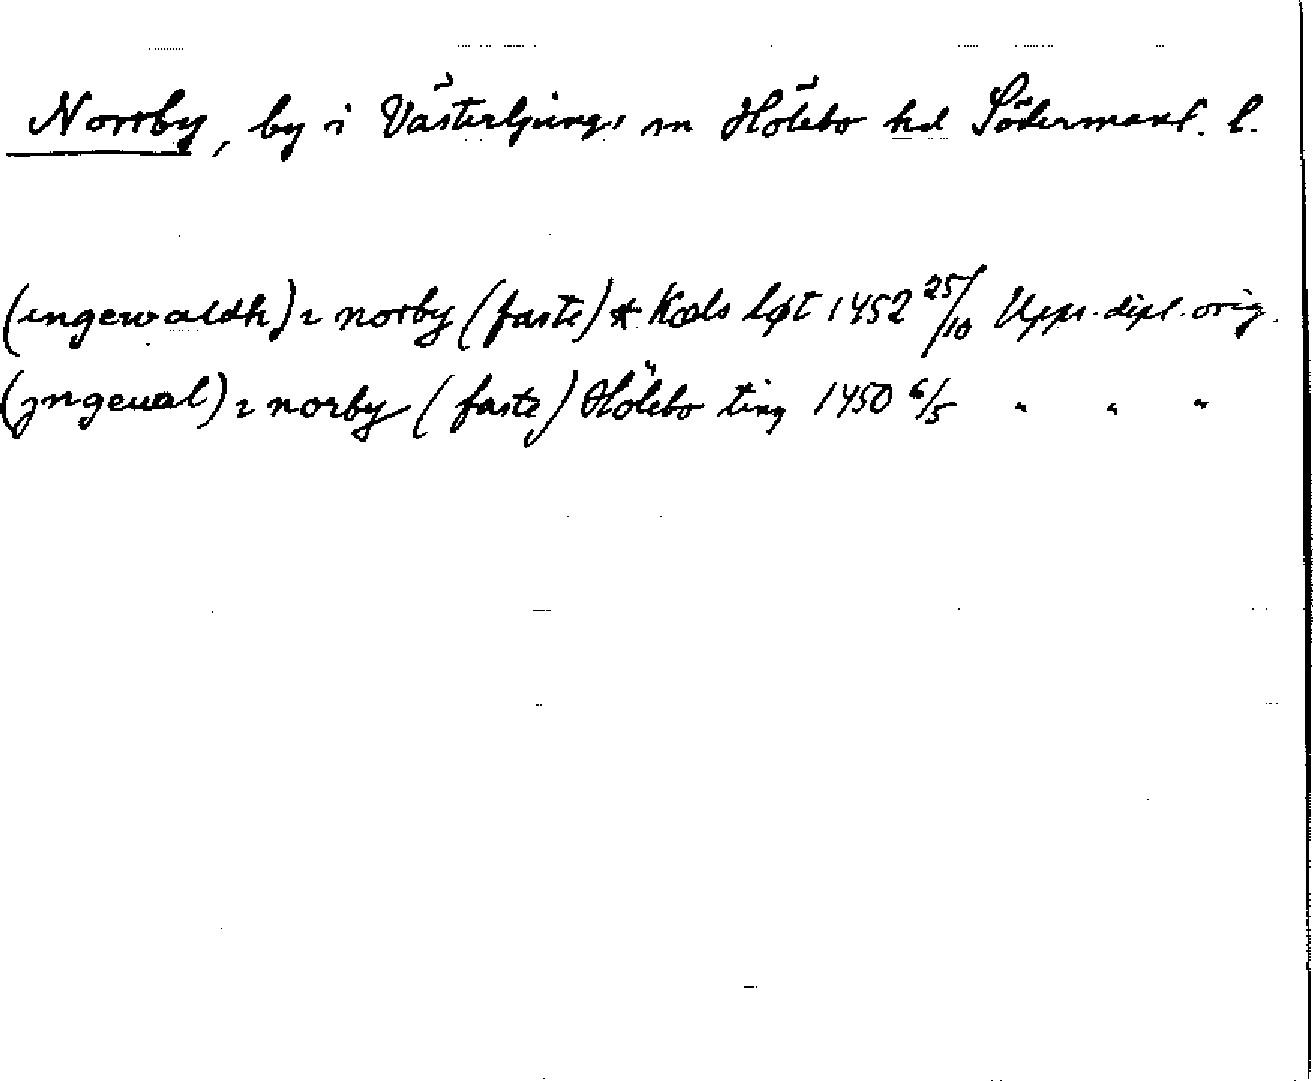 Norrby, by i Västerljungs sn Hölebo hd Södermanl. l.
(ingewaldh) i norby (faste) * Kæls løt 1452 25/10 Upps. dipl. orig.
(yngeual) i norby (faste) Hölebo ting 1450 6/5 " " "